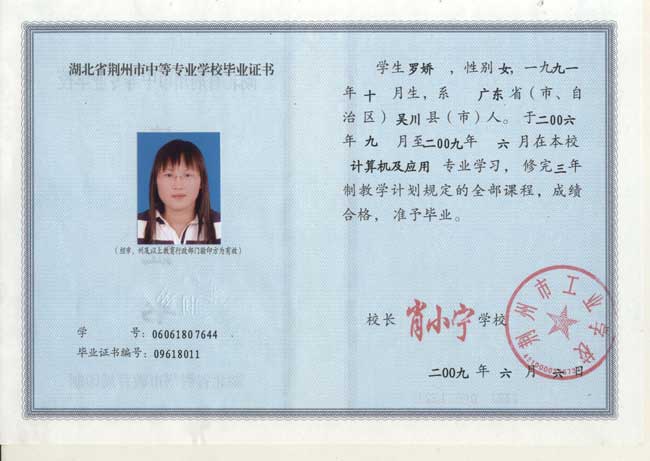 湖北省荆州市中等专业学校毕业证书
（经市、州及以上教育行政部门验印方为有效）
学 号：06061807644
毕业证书编号：09618011
学生 罗娇 ，性别 女，一九九一
年 十 月生，系 广东 省（市、自
治区）吴川 县（市）人。于二00六
年 九 月至二00九年 六 月在本校
计算机及应用 专业学习，修完三年
制教学计划规定的全部课程，成绩
合格，准予毕业。
校长 肖小宁 学校
荆州市工业学校
二00九 年 六 月 六 日